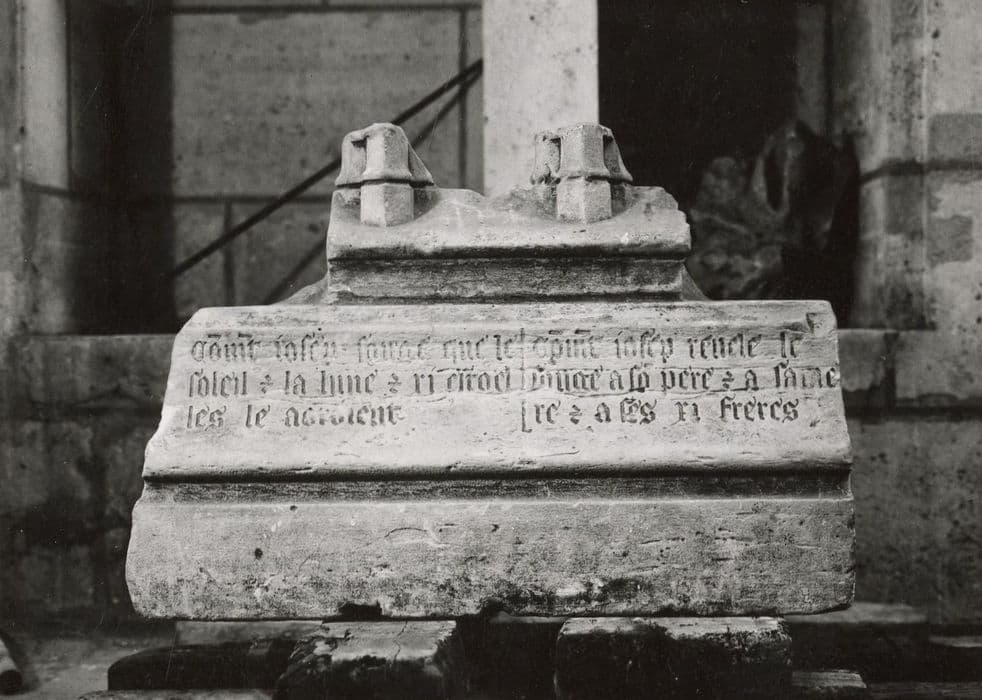 cõmt iosep songe que le
soleil ⁊ la lune ⁊ xi estoel
les le aoroient
cõmt iosep reuele le
songe a sõ pere ⁊ a sa me
re ⁊ a ses xi freres